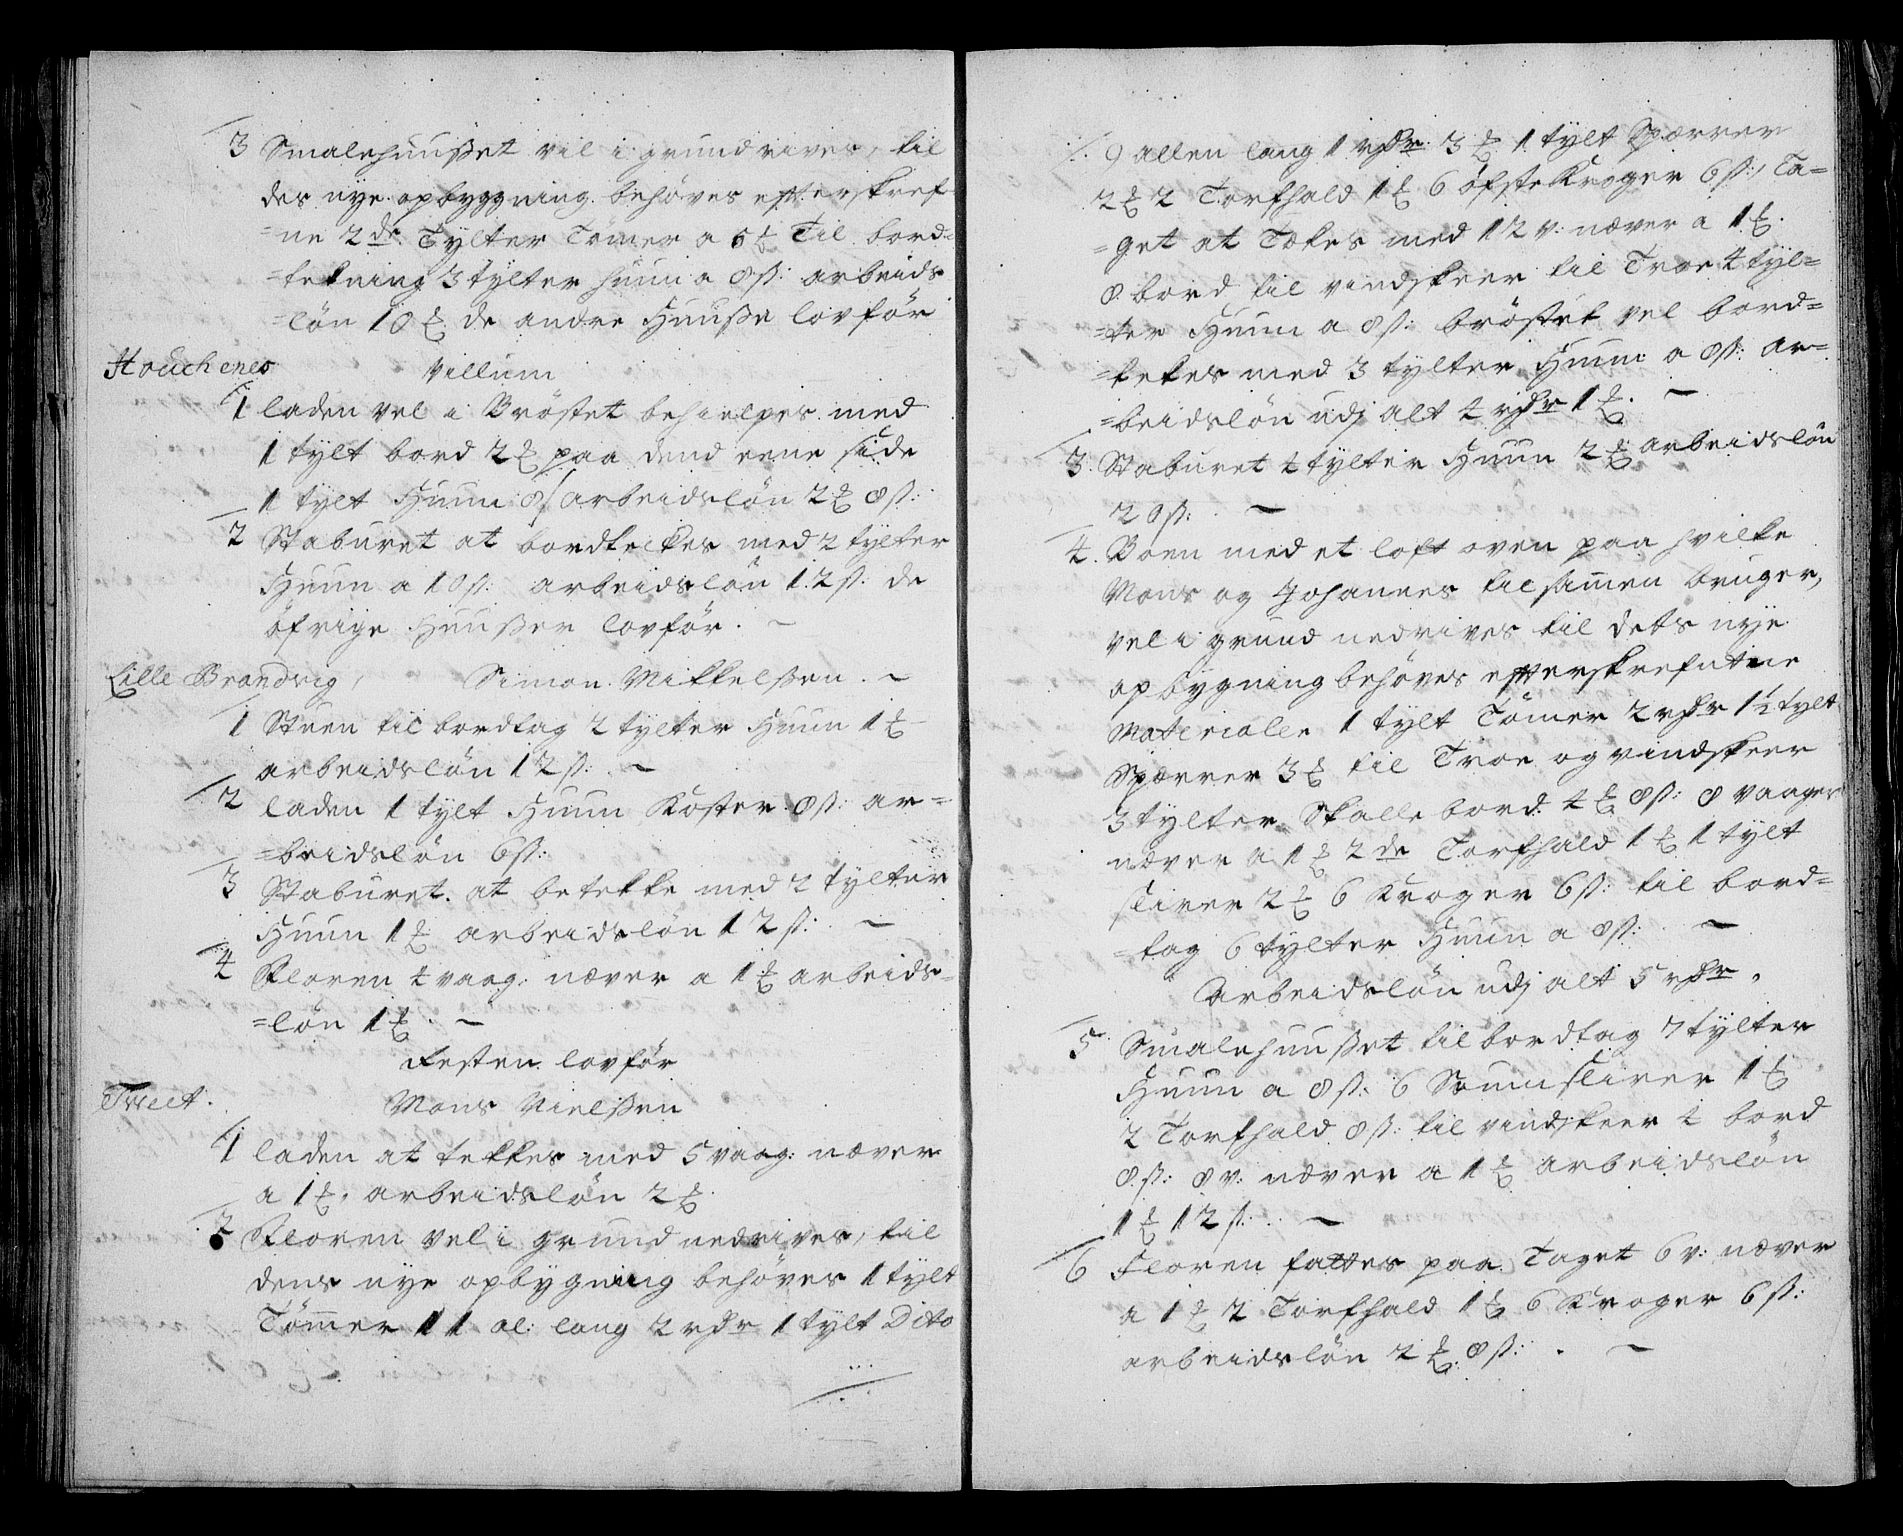 3 Smalehuuset vil i grund rives, til
des nye opbyggning behöves efterskref
=ne 2de Tylter Tömer a 6 ₻ Til bord=
=tekning 3 tylter huun a 8 ß: arbeids
=lön 10 ₻ de andre Huuse lovför
Houchenes Villum
1 laden vel i Bröstet behielpes med
1 tylt bord 2 ₻ paa dend eene side
1 tylt Huun 8 ß arbeidslön 2 ₻ 8 ß:
2 Staburet at bordteckes med 2 tylter
Huun a 10 ß: arbeidslön 12 ß: de
öfrige Huusser lovför. –
Lille Brandvig, Simon Mikkelssen. –
1 Stuen til bordtag 2 tylter Huun 1 ₻
arbeidslön 12 ß: –
2 laden 1 tylt Huun Koster 8 ß: ar=
=beidslön 6 ß:
3 Staburet at betekke med 2 tylter
Huun 1 ₻ arbeidslön 12 ß: –
4 Floren 4 vaag: næver a 1 ₻ arbeids=
=lön 1 ₻. –
Resten lovför
Tveet. Mons Nielssen
1 laden at tekkes med 5 vaag: næver
a 1 ₻, arbeidslön 2 ₻
2 Floren vel i grund nedrives, til
dens nye opbygning behöves 1 tylt
Tömmer 11 al: lang 2 rdr 1 tylt Dito
./.
./. 9 allen lang 1 rdr 3 ₻ 1 tylt Spærrer
2 ₻ 2 Torfhald 1 ₻ 6 öfste Kroger 6 ß:, Ta=
=get at Tekes med 12 v: næver a 1 ₻.
8 bord til vindskeer til Troe 4 tyl=
=ter Huun a 8 ß: bröstet vel bord=
=tekes med 3 tylter Huun a 8 ß: ar=
=beidslön udj alt 4 rdr 1 ₻. –
3. Staburet 4 tylter Huun 2 ₻ arbeidslön
20 ß: . –
4. Boen med et loft oven paa hvilke
Mons og Johannes tilsamen bruger,
vel i grund nedrives til dets nye
opbygning behöves efterskrefntne
Materialer 1 tylt Tömer 2 rdr 1½ tylt
Spærrer 3 ₻ til Troe og vindskeer
3 tylter Skalle bord 4 ₻ 8 ß: 8 vaager
næver a 1 ₻ 2de Torfhald 1 ₻ 1 tylt
slirer 2 ₻ 6 Kroger 6 ß: til bord=
=tag 6 tylter Huun a 8 ß: –
arbeidslön udj alt 5 rdr.
5 Smalehuuset til bordtag 7 tylter
Huun a 8 ß: 6 Soumslirer 1 ₻
2 Torfhald 8 ß: til vindskeer 4 bord
8 ß: 8 v: næver a 1 ₻ arbeidslön
1 ₻ 12 ß: –
6 Floren fattes paa Taget 6 v: næver
a 1 ₻ 2 Torfhald 1 ₻ 6 Kroger 6 ß:
arbeidslön 2 ₻ 8 ß: . –